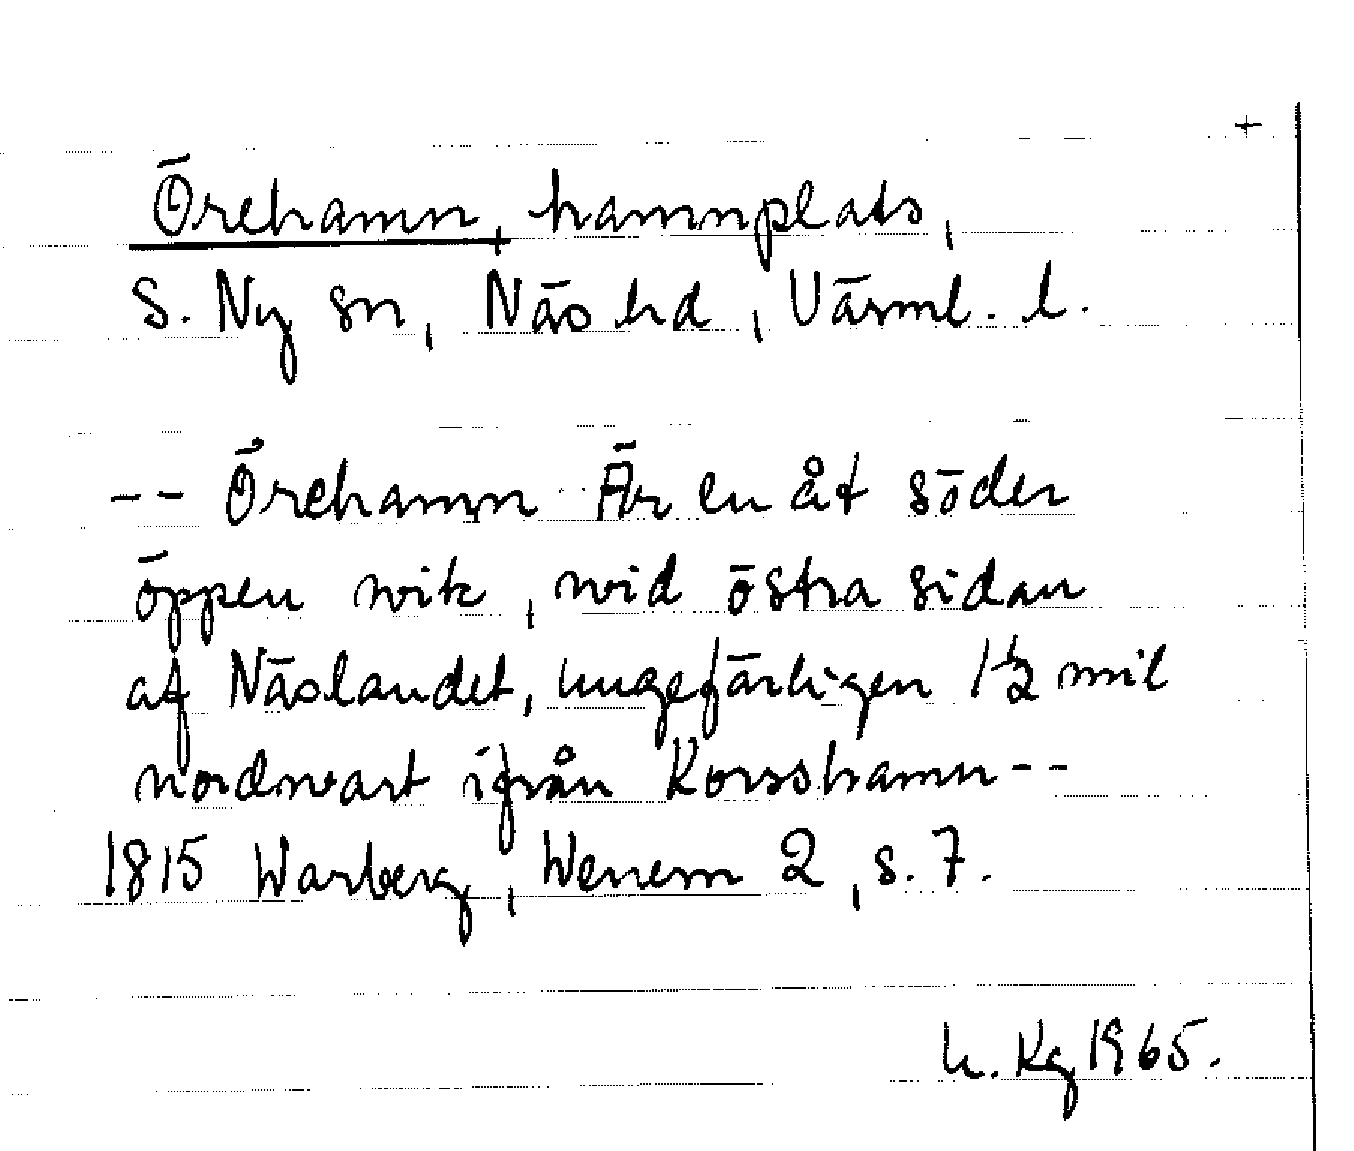 +
Örehamn, hamnplats,
S. Ny sn, Näs hd, Värml. l.
-- Örehamn Är en åt söder
öppen wik, wid östra sidan
af Näslandet, ungefärligen 1½ mil
nordwart ifrån Korsshamn--
1815 Warberg, Wenern 2, s. 7.
h. Kg 1965.